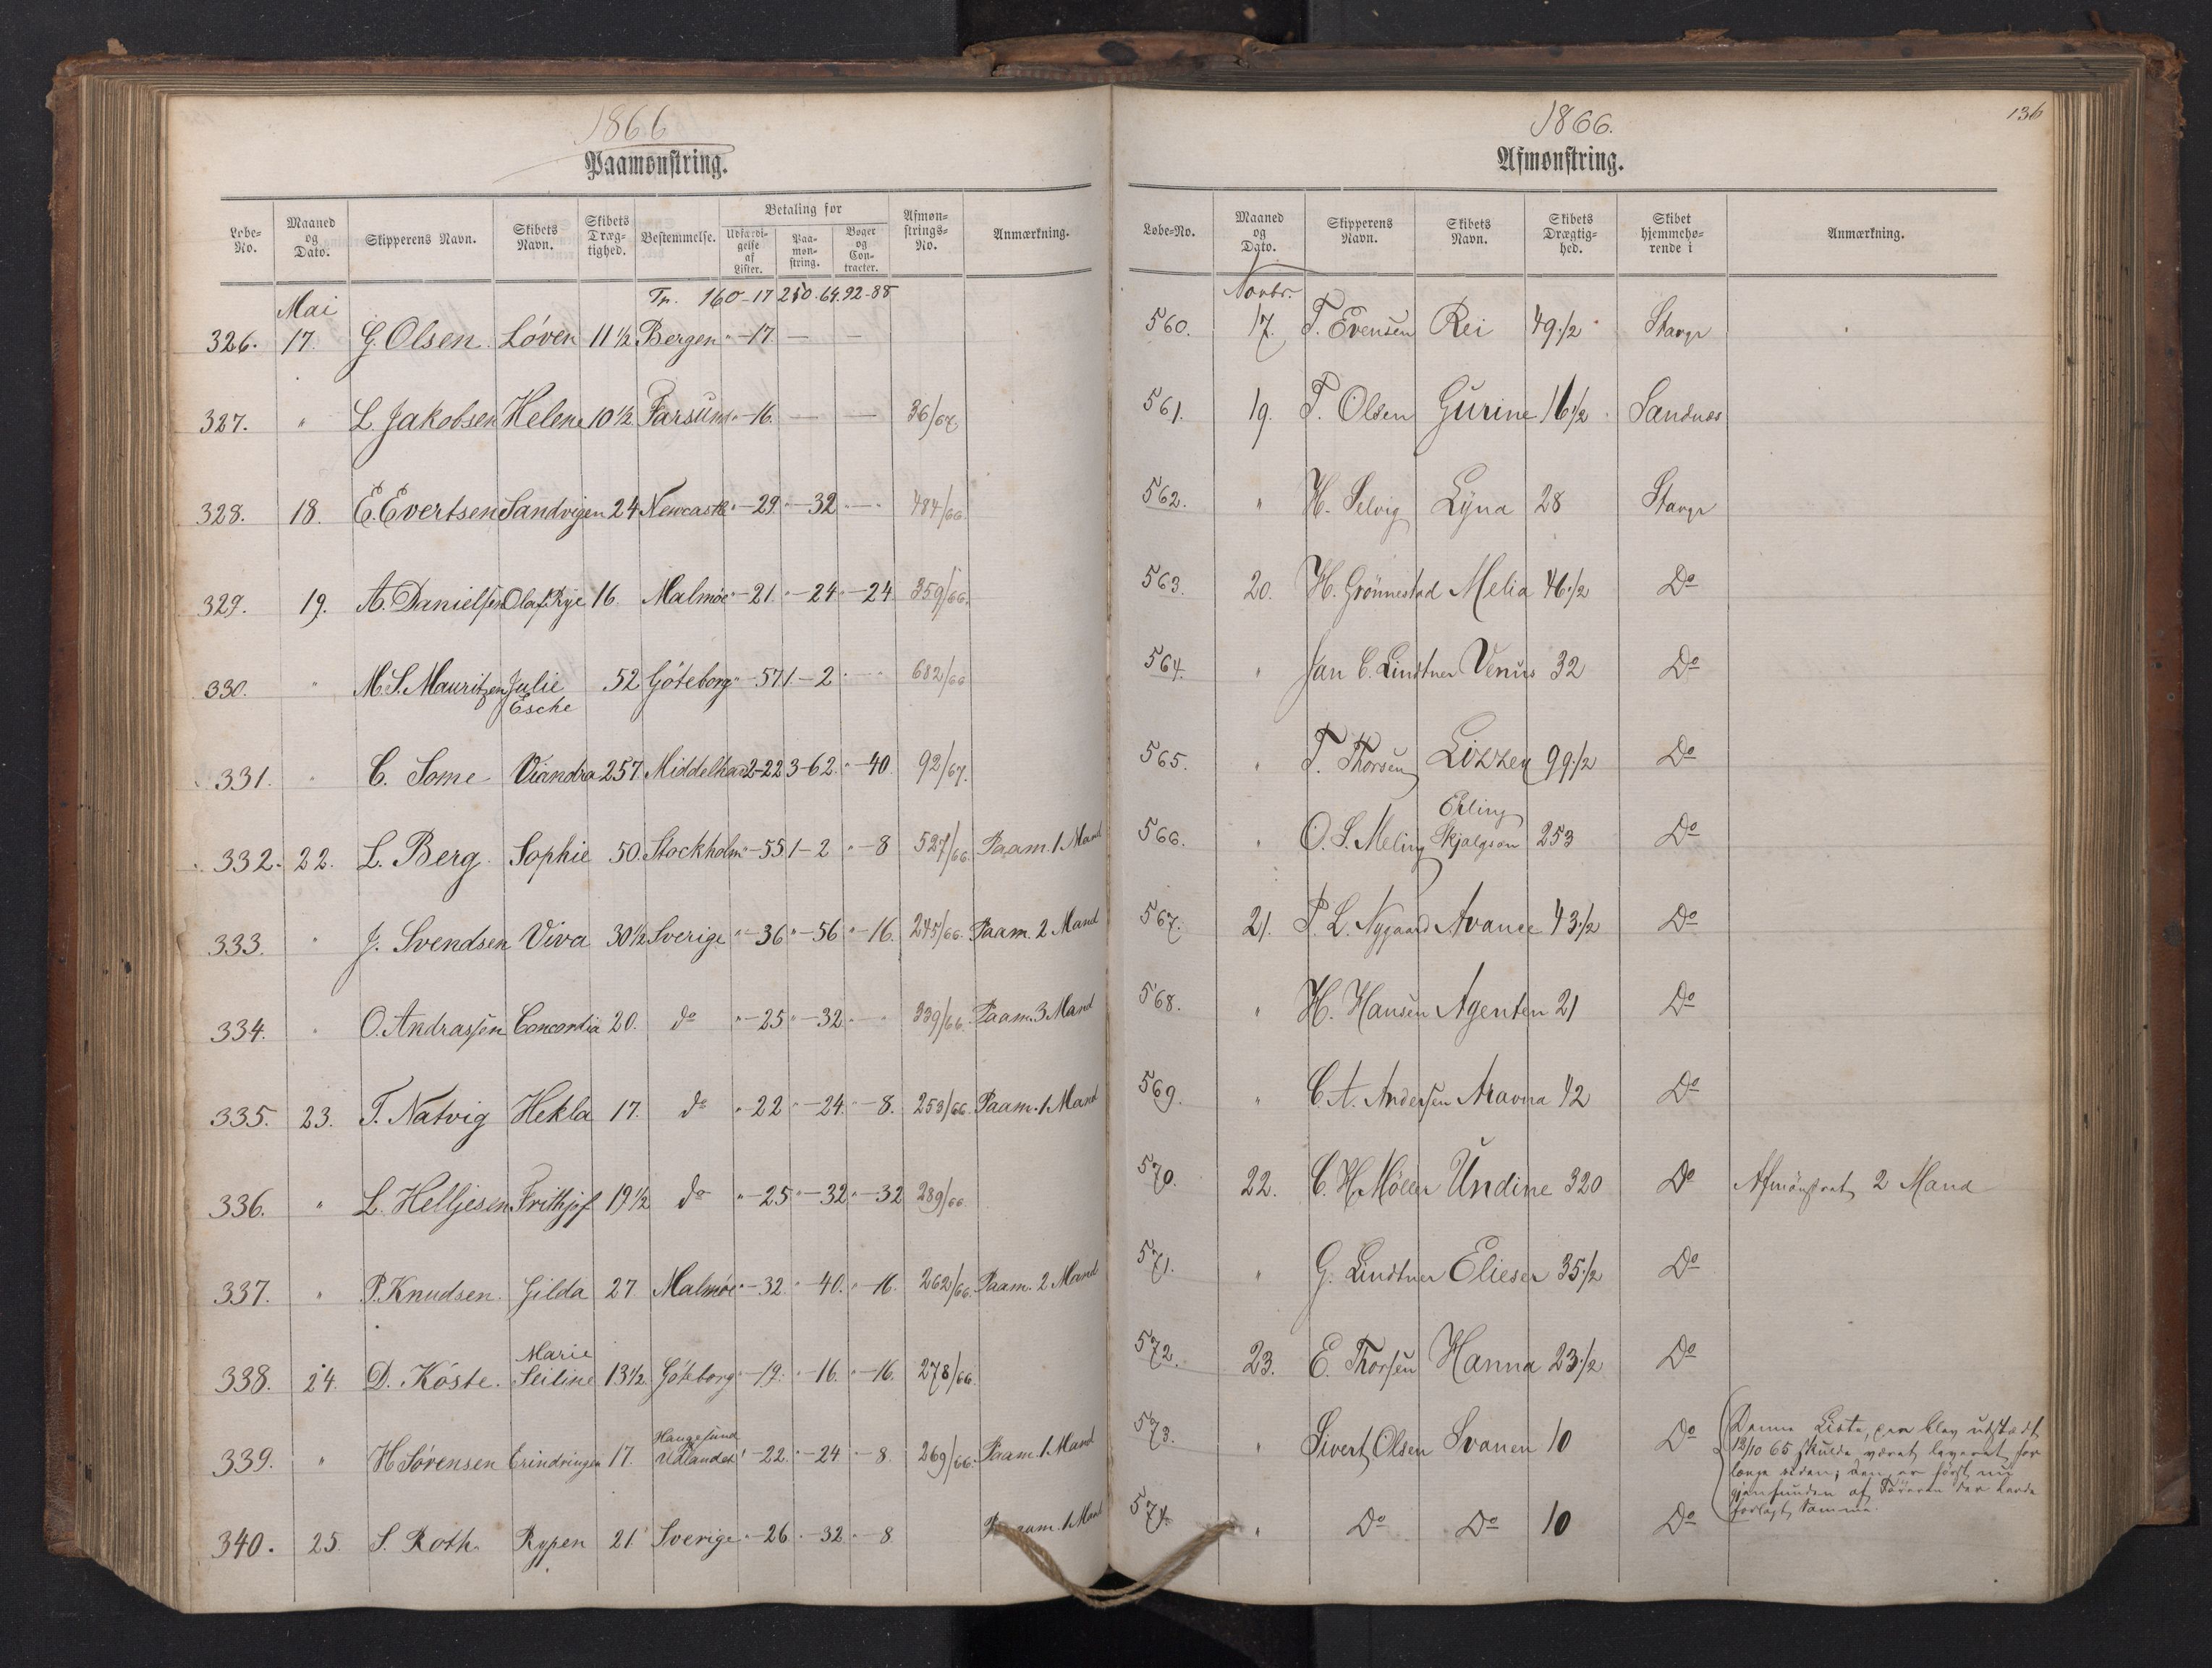 1866
Paamønstring.
Løbe-No. Maaned og Dato. Skipperens Navn. Skibets Navn. Skibets Dræg-tighed. Bestemmelse. Betaling for Udfærdi-gelse af Lister. Paa-møn-string. Bøger og Con-tracter. Afmøn-strings-No. Anmærkning.
Tr. 160-17 250.64.92-88
Mai
326. 17. G. Olsen. Löven 11 1/2 Bergen " -17. — —
327. " L. Jakobsen Helene 10 1/2 Farsund " -16. — — 36/67
328. 18. E. Evertsen Sandvigen 24 Newcastle " -29. " -32 " — 484/66.
329. 19. A. Danielsen Olaf Rye 16. Malmöe " -21. " -24 " -24 359/66.
330. " M. S. Mauritzen Julie Esche 52 Göteborg " -57 1-2 " — 682/66
331. " C. Some Viandra 257. 2-22 3-62. " -40 92/67.
332. 22. L. Berg. Sophie 50. Stockholm " -55 1-2 " -8 527/66. Paam. 1 Mand
333. " J. Svendsen Viva 30 1/2 Sverige " -36 " -56 " -16. 245/66. Paam. 2 Mand
334. " O. Andrassen Concordia 20. do " -25 " -32 " — 339/66. Paam. 3 Mand
335. 23. T. Natvig Hekla 17. do " -22 " -24. " -8. 253/66. Paam. 1 Mand
336. " L. Helljesen Frithjof 19 1/2 do " -25 " -32 " -32 289/66.
337. " P. Knudsen. Gilda 27 Malmöe " -32. " -40. " -16. 262/66. Paam. 2 Mand
338. 24. D. Köste. Marie Seiline 13 1/2. Göteborg " -19. " -16. " -16. 278/66.
339. " H Sörensen Erindringen 17. Haugesund Udlandet " -22. " -24 " -8. 269/66. Paam. 1 Mand
340. 25. S. Roth. Rypen 21. Sverige " -26 " -32 " -8 Paam. 1 Mand
136
1866.
Afmønstring.
Løbe-No. Maaned og Dato. Skipperens Navn. Skibets Navn. Skibets Drægtig-hed. Skibet hjemmehø-rende i Anmærkning.
Novbr.
560. 17. T. Evensen Rei 49 1/2 Stavgr
561. 19. T. Olsen Gurine 16 1/2 Sandnes
562. " H. Selvig Lyna 28 Stavgr
563. 20. H. Grönnestad Melia 46 1/2 Do
564. " Jan C. Lindtner Venus 32 Do
565. " T. Thorsen Lizzey 99 1/2 Do
566. " O. S. Meling Erling Skjalgson 253 Do
567. 21. P. L. Nygaard Avance 43 1/2 Do
568. " H. Hansen Agenten 21 Do
569. " C. A. Andersen 42 Do
570. 22. C. H. Møller Undine 320 Do Afmönstret 2 Mand
571. " G. Lindtner Elieser 35 1/2 Do
572. 23. E. Thorsen Hanna 23 1/2 Do
573. " Sivert Olsen Svanen 10 Do Denne Liste, som blev udstædt
12/10 65 skulde været leveret for
længe siden; den er först nu
gjenfunden af Föreren der havde
forlagt samme.
574. " Do Do 10 Do